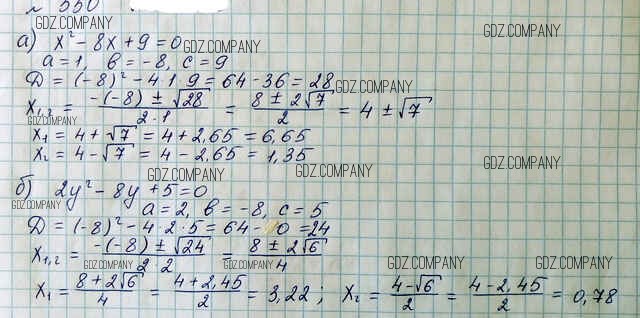 № 550
GDZ.COMPANY GDZ.COMPANY
а) x² - 8x + 9 = 0 GDZ.COMPANY
a = 1, b = -8, c = 9
D = (-8)² - 4·1·9 = 64 - 36 = 28 GDZ.COMPANY
x₁,₂ = (-(-8) ± √28)/(2·1) = (8 ± 2√7)/2 = 4 ± √7
GDZ.COMPANY GDZ.COMPANY
x₁ = 4 + √7 = 4 + 2,65 = 6,65
x₂ = 4 - √7 = 4 - 2,65 = 1,35
GDZ.COMPANY GDZ.COMPANY GDZ.COMPANY
б) 2y² - 8y + 5 = 0
GDZ.COMPANY a = 2, b = -8, c = 5 GDZ.COMPANY
D = (-8)² - 4·2·5 = 64 - 0 = 24
x₁,₂ = (-(-8) ± √24)/(2·2) = (8 ± 2√6)/4
GDZ.COMPANY GDZ.COMPANY GDZ.COMPANY GDZ.COMPANY
x₁ = (8 + 2√6)/4 = (4 + 2,45)/2 = 3,22; x₂ = (4 - √6)/2 = (4 - 2,45)/2 = 0,78